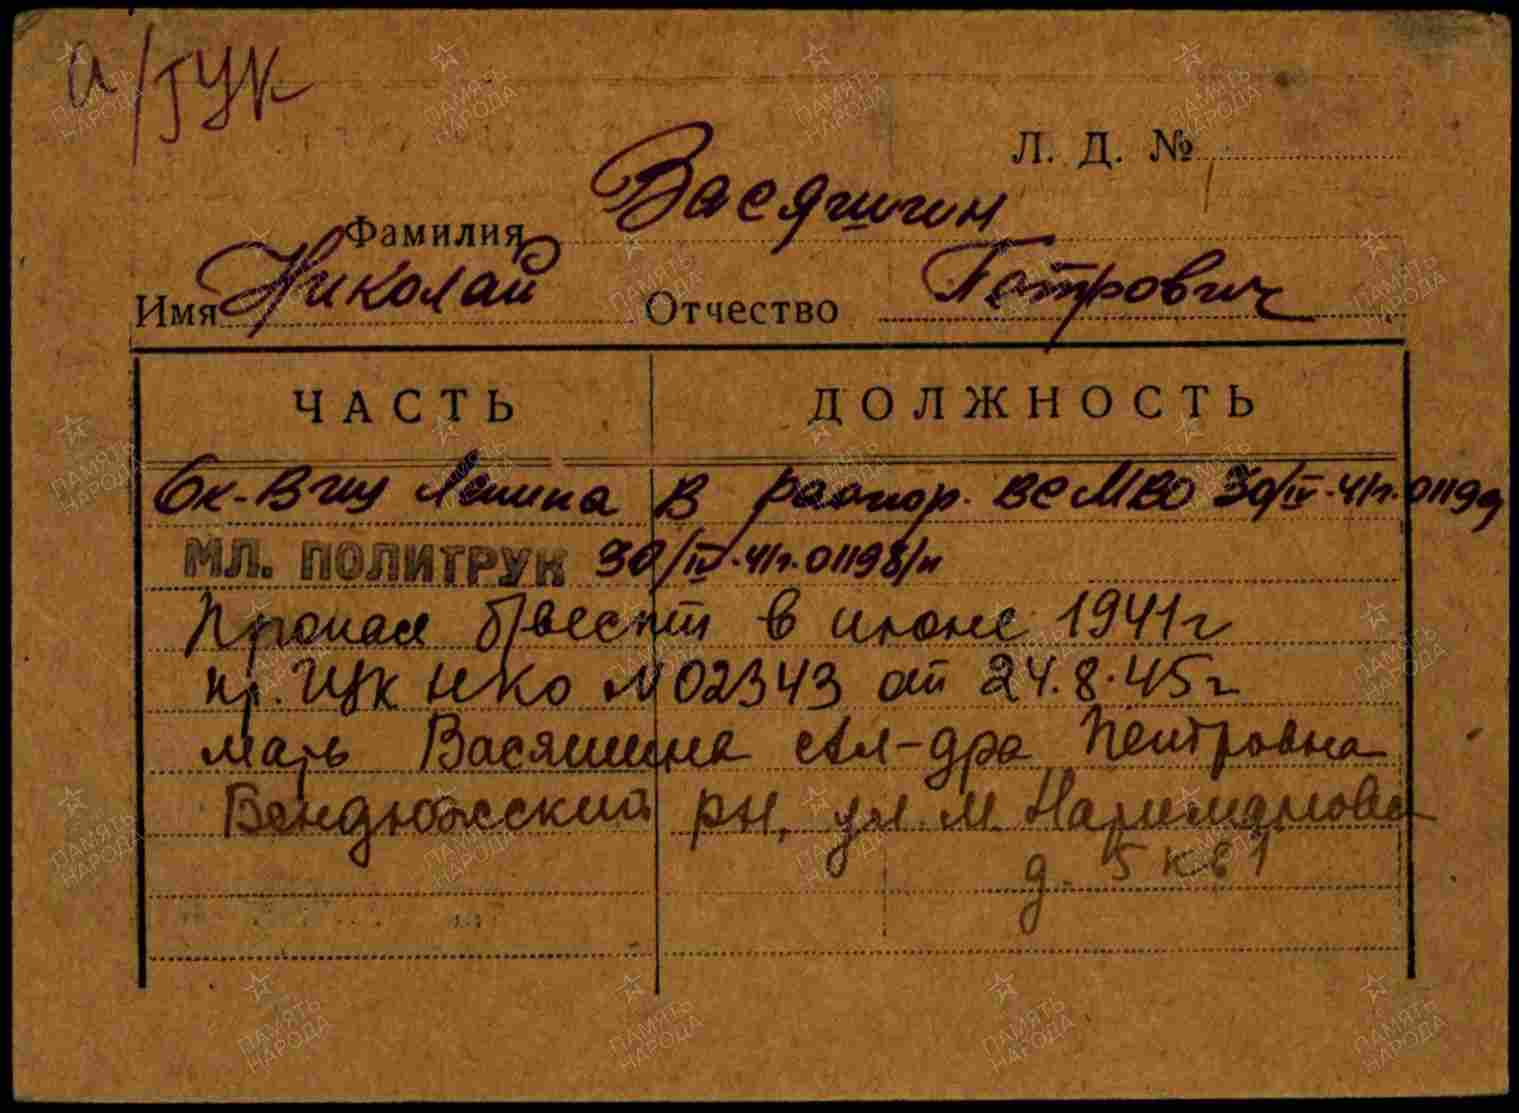 а/ГУК
Л. Д. №
Фамилия Васяшин
Имя Николай Отчество Петрович
ЧАСТЬ ДОЛЖНОСТЬ
Ок. Ленина В распор. ВС МВО 30/IV-41г. 01199
МЛ. ПОЛИТРУК 30/IV-41г. 01198/п
Пропал б/вест в июне 1941 г
пр. ГУК НКО № 02343 от 24.8.45 г
мать Васяшина Ал-дра Петровна
рн, ул. М. Нариманова
д. 5 кв 1
ПАМЯТЬ НАРОДА